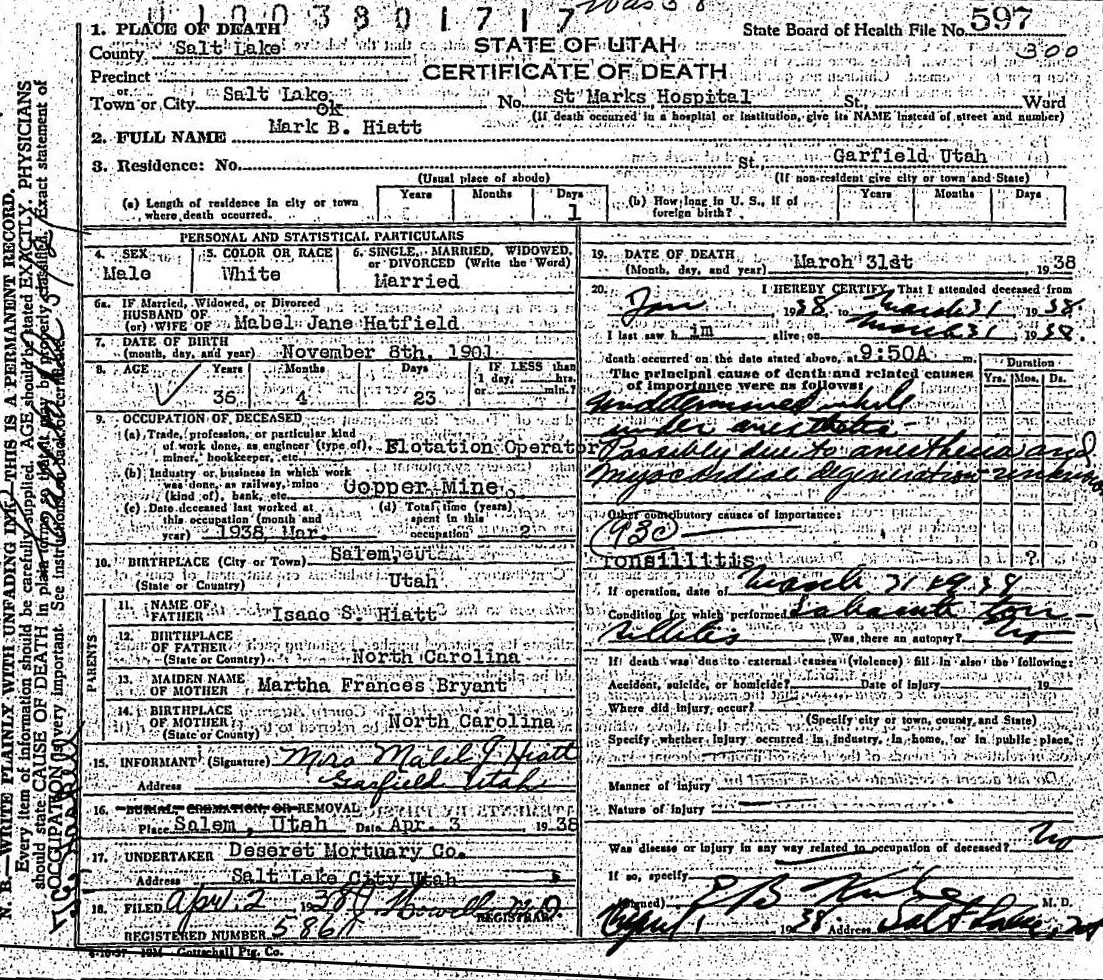 U 1 0 0 3 8 0 1 7 1 7
1. PLACE OF DEATH
State Board of Health File No. 597
County Salt Lake
STATE OF UTAH
300
Precinct
CERTIFICATE OF DEATH
or
Town or City Salt Lake No. St Marks Hospital St., Ward
ok
(If death occurred in a hospital or institution, give its NAME instead of street and number)
2. FULL NAME Mark B. Hiatt
3. Residence: No. St. Garfield Utah
(Usual place of abode) (If non-resident give city or town and State)
(a) Length of residence in city or town where death occurred. Years Months Days 1
(b) How long in U. S., if of foreign birth? Years Months Days
PERSONAL AND STATISTICAL PARTICULARS
4. SEX 5. COLOR OR RACE 6. SINGLE, MARRIED, WIDOWED, or DIVORCED (Write the Word)
Male White Married
6a. IF Married, Widowed, or Divorced
HUSBAND OF
(or) WIFE OF Mabel Jane Hatfield
7. DATE OF BIRTH
(month, day, and year) November 8th, 1901
8. AGE Years Months Days IF LESS than 1 day, hrs. or min.?
36 4 23
9. OCCUPATION OF DECEASED
(a) Trade, profession, or particular kind of work done, as engineer (type of), miner, bookkeeper, etc. Flotation Operator
(b) Industry or business in which work was done, as railway, mine (kind of), bank, etc. Copper Mine
(c) Date deceased last worked at this occupation (month and year) 1938 Mar.
(d) Total time (years) spent in this occupation 2
10. BIRTHPLACE (City or Town) Salem, ut
(State or Country) Utah
PARENTS
11. NAME OF FATHER Isaac S. Hiatt
12. BIRTHPLACE OF FATHER
(State or Country) North Carolina
13. MAIDEN NAME OF MOTHER Martha Frances Bryant
14. BIRTHPLACE OF MOTHER
(State or County) North Carolina
15. INFORMANT (Signature) Mrs Mabel J Hiatt
Address Garfield Utah
16. BURIAL, CREMATION, OR REMOVAL
Place Salem, Utah Date Apr. 3 1938
17. UNDERTAKER Deseret Mortuary Co.
Address Salt Lake City Utah
18. FILED Apr. 2 1938
REGISTRAR
REGISTERED NUMBER 586
19. DATE OF DEATH
(Month, day, and year) March 31st 1938
20. I HEREBY CERTIFY, That I attended deceased from
Jan 1938 to March 31 1938.
I last saw h im alive on March 31, 1938.
death occurred on the date stated above, at 9:50A m.
The principal cause of death and related causes of importance were as follows:
Duration
Yrs. Mos. Ds.
Undetermined while
under anesthetic -
Possibly due to anesthesia and
myocardial degeneration - unknown
Other contributory causes of importance:
93c
Tonsillitis ?
If operation, date of March 31 1938
Condition for which performed Subacute ton-
sillitis Was there an autopsy? No
If death was due to external causes (violence) fill in also the following:
Accident, suicide, or homicide? Date of injury 19
Where did injury occur?
(Specify city or town, county, and State)
Specify whether injury occurred in industry, in home, or in public place.
Manner of injury
Nature of injury
Was disease or injury in any way related to occupation of deceased? No
If so, specify
(Signed) E B M. D.
April 1 1938 Address Salt Lake, Ut
Gottschall Ptg. Co.
N. B.—WRITE PLAINLY WITH UNFADING INK—THIS IS A PERMANENT RECORD.
Every item of information should be carefully supplied. AGE should be stated EXACTLY. PHYSICIANS
should state CAUSE OF DEATH in plain terms, so that it may be properly classified. Exact statement of
OCCUPATION is very important. See instructions on back of certificate.